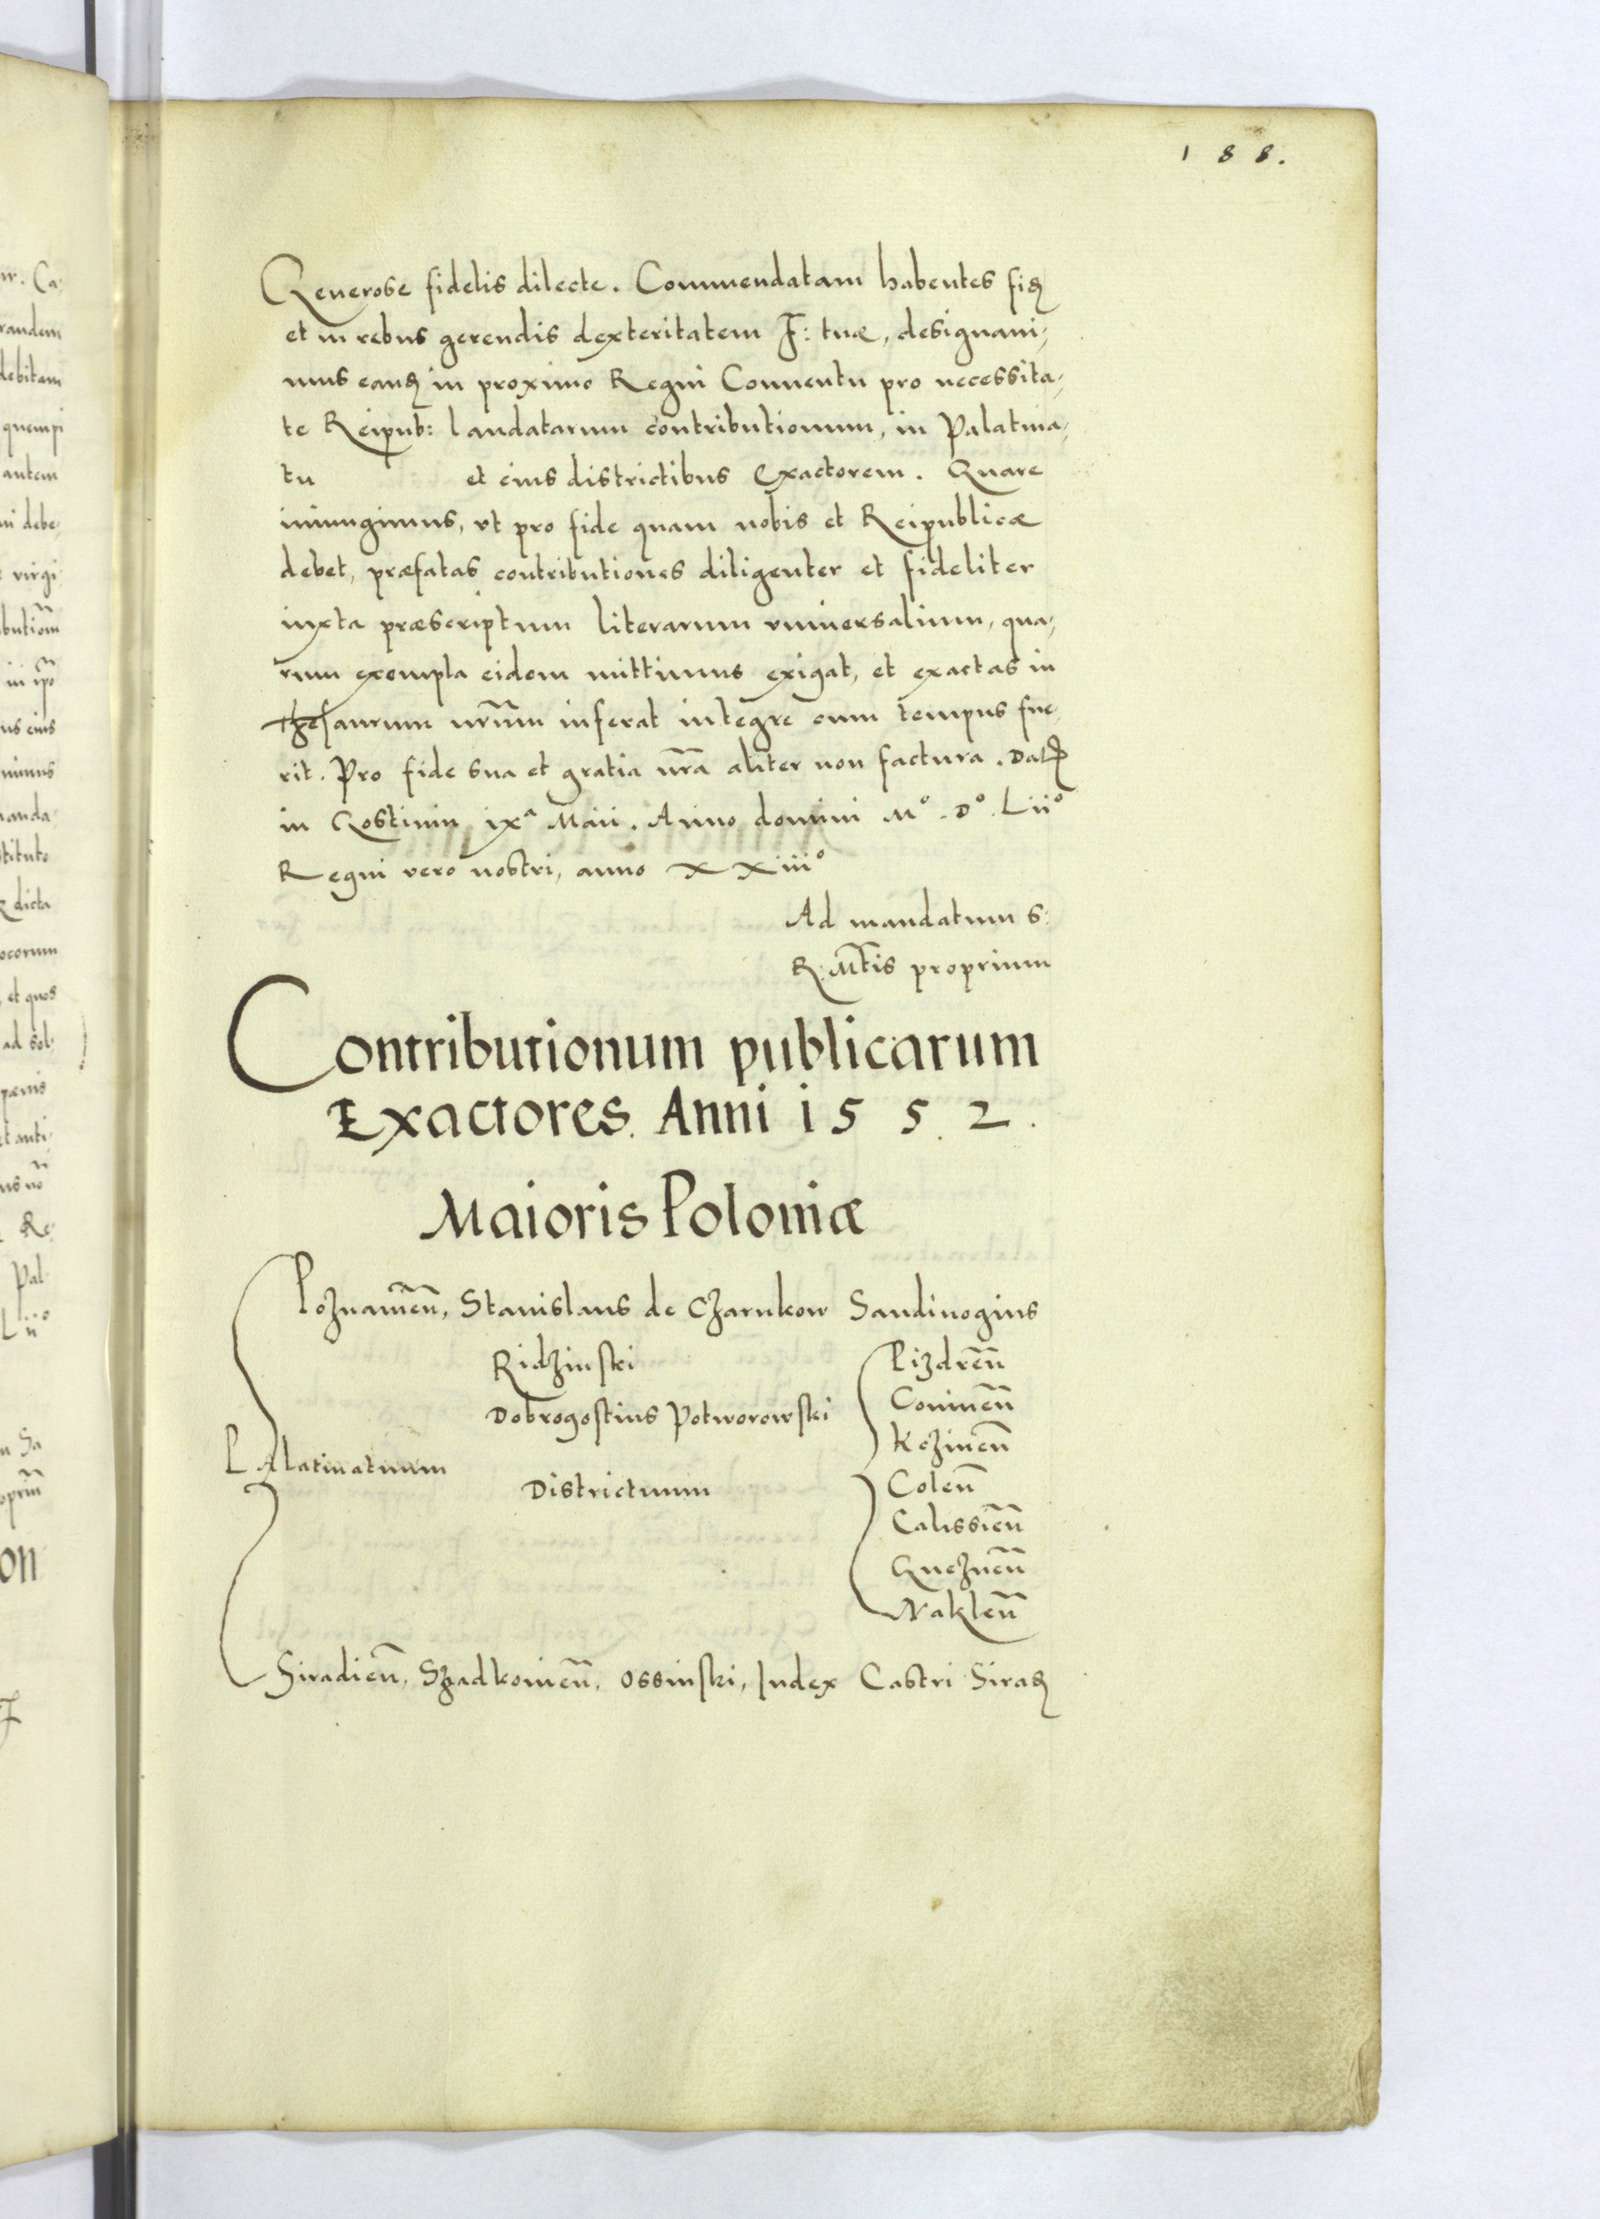 188.
Generose fidelis dilecte. Commendatam habentes fid
et in rebus gerendis dexteritatem F: tuæ, designaui,
mus eand in proximo Regni Conuentu pro necessita,
te Reipub: laudatarum contributionum, in Palatina,
tu et eius districtibus Exactorem. Quare
iniungimus, vt pro fide quam nobis et Reipublicæ
debet, præfatas contributiones diligenter et fideliter
iuxta præscriptum literarum vniuersalium, qua,
rum exempla eidem mittimus exigat, et exactas in
Thesaurum nrum inferat integre cum tempus fue,
rit. Pro fide sua et gratia nra aliter non factura. Dat
in Gostinin ixª Maii. Anno domini Mº. Dº. Liiº
Regni vero nostri, anno XXiiiº
Ad mandatum S:
R. Mtis proprium
Contributionum publicarum
Exactores. Anni 1552.
Maioris Poloniæ
Poznanien, Stanislaus de Czarnkow Sandiuogius
Ridzinski Pizdren
Dobrogostius Potworowski Coninen
Kczinen
Palatinatuum
Districtuum Colen
Calissien
Gneznen
Naklen
Siradien, Szadkouien, Ossinski, Iudex Castri Sirad